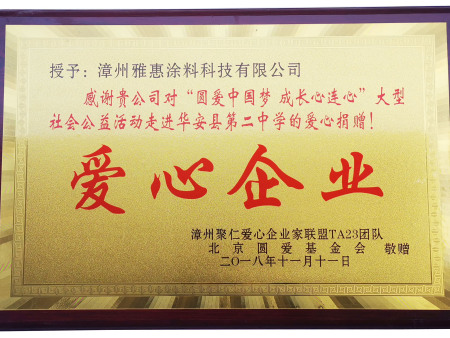 授予：漳州雅惠涂料科技有限公司
感谢贵公司对“圆爱中国梦 成长心连心”大型
社会公益活动走进华安县第二中学的爱心捐赠！
爱心企业
漳州聚仁爱心企业家联盟TA23团队
北京圆爱基金会 敬赠
二〇一八年十一月十一日